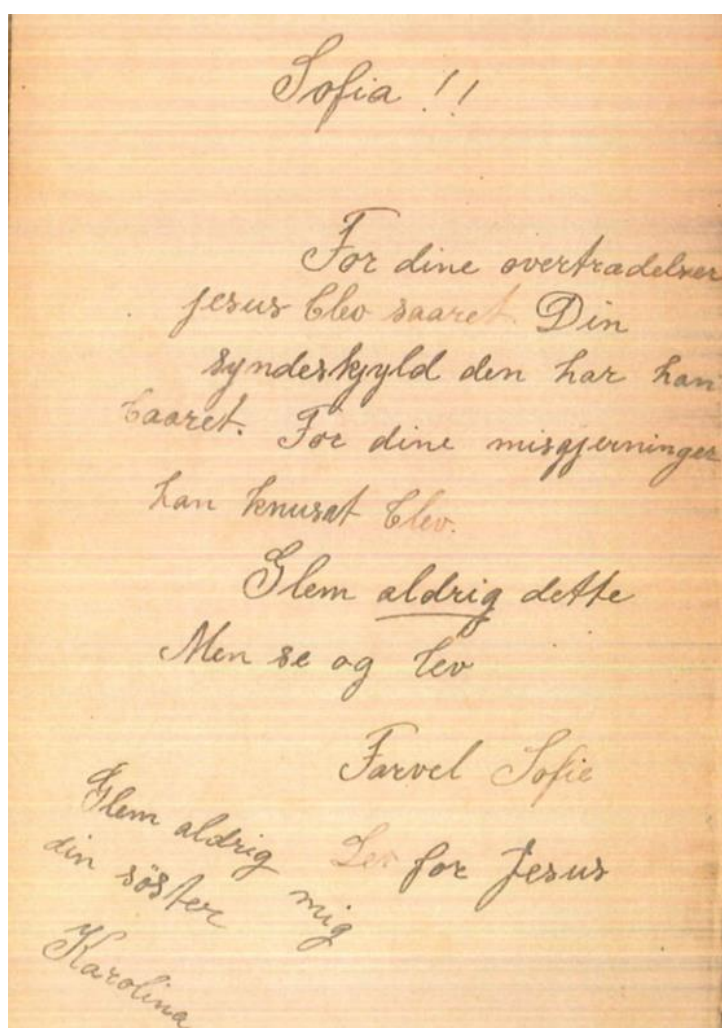 Sofia !!
For dine overtrædelser
jesus blev saaret. Din
syndeskjyld den har han
baaret. For dine misgjerninger
han knusat blev.
Glem aldrig dette
Men se og lev
Farvel Sofie
Lev for Jesus
Glem aldrig mig
din söster
Karolina